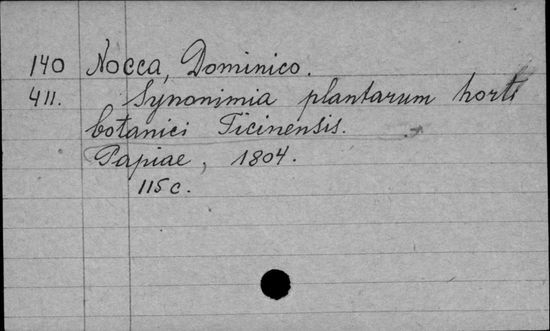 140 Nocca, Dominico.
411. Synonimia plantarum horti
botanici Ticinensis.
Papiae, 1804.
115 c.